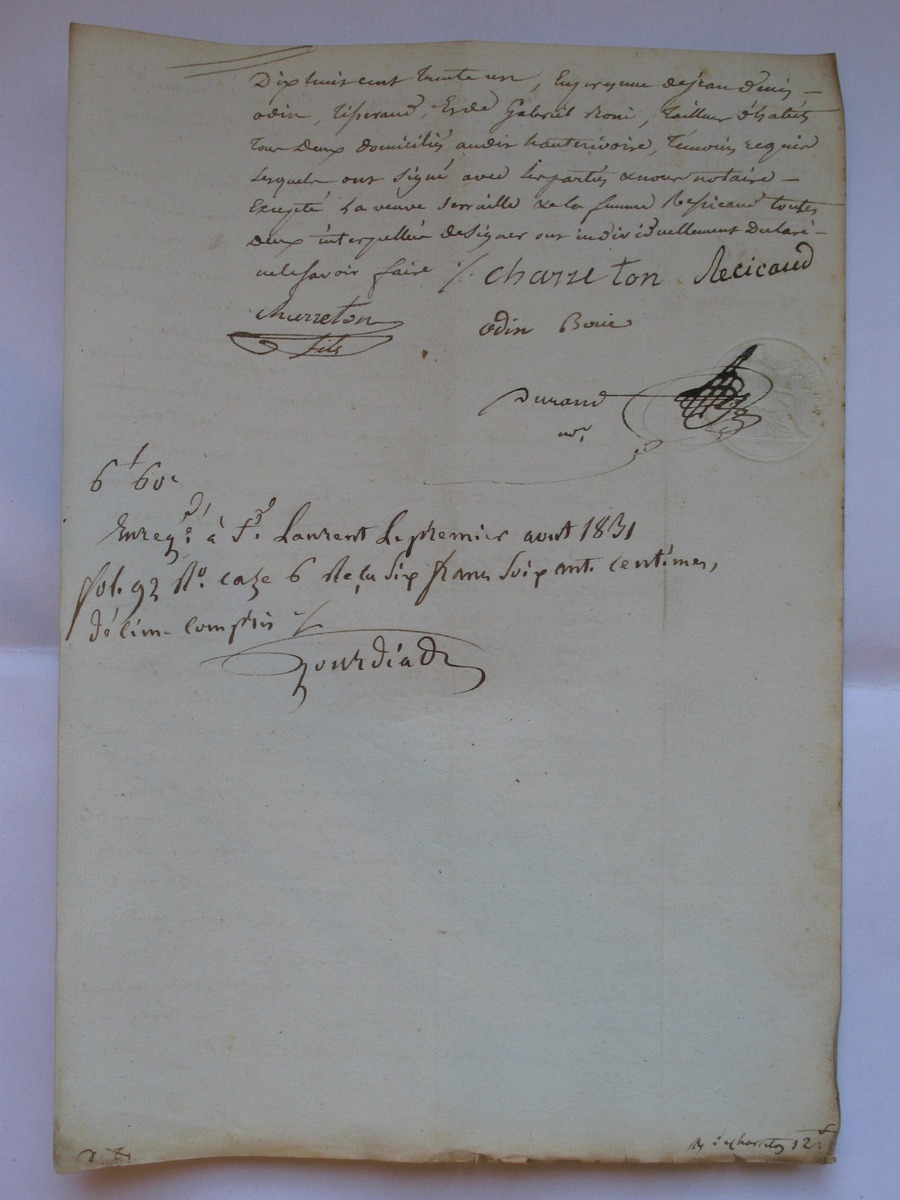 Dix huit cent trente un, En presence de jean denis
odin, tisserand, Et de Gabriel Boui, tailleur d'habits
tous Deux domiciliés audit hauterivoire, témoins requis
Lesquels ont signé avec Les parties & nous notaire
Excepté La veuve & de la femme Recicaud toutes
Deux interpellées de signer ont individuellement Declaré
ne le savoir faire ./.
Charreton Recicaud
Charreton
fils
odin Boui
Durand
nre
6f 60c
Enregé à St Laurent Le premier aout 1831
fol. 92 Ro. caze 6 Reçu Six francs Soixante centimes,
décime compris ./.